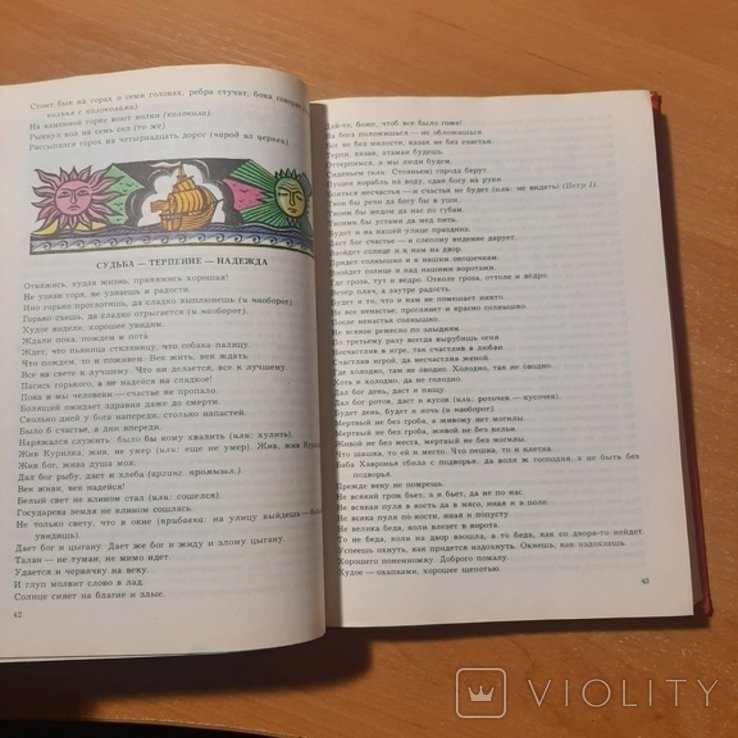 Стоит бык на горах о семи головах, ребра стучат, бока говорят
колья с колоколами).
На каменной горке воют волки (колокола).
Рыкнул вол на семь сел (то же)
Рассыпался горох на четырнадцать дорог (народ из церкви).
СУДЬБА — ТЕРПЕНИЕ — НАДЕЖДА
Отвяжись, худая жизнь, привяжись хорошая!
Не узнав горя, не узнаешь и радости.
Ино горько проглотишь, да сладко выплюнешь (и наоборот).
Горько съешь, да сладко отрыгается (и наоборот).
Худое видели, хорошее увидим.
Ждали пока, пождем и пота.
Ждет, что пьяница стклянницу, что собака палицу.
Что пождем, то и поживем. Век жить, век ждать.
Все на свете к лучшему. Что ни делается, все к лучшему.
Пасись горького, а не надейся на сладкое!
Пока и мы человеки — счастье не пропало.
Болящий ожидает здравия даже до смерти.
Сколько дней у бога напереди, столько напастей.
Было б счастье, а дни впереди.
Наряжался служить: было бы кому хвалить (или: хулить).
Жив Курилка, жив, не умер (или: еще не умер). Жив, жив
Жив бог, жива душа моя.
Дал бог рыбу, даст и хлеба (арханг. промышл.).
Век живи, век надейся!
Белый свет не клином стал (или: сошелся).
Государева земля не клином сошлась.
Не только свету, что в окне (прибавка: на улицу выйдешь —
увидишь).
Дает бог и цыгану. Дает же бог и жиду и злому цыгану.
Талан — не туман, не мимо идет.
Удается и червячку на веку.
И глуп молвит слово в лад.
Солнце сияет на благие и злые.
42
Дай-то, боже, чтоб все было гоже!
На бога положишься — не обложишься.
Бог не без милости, казак не без счастья.
Терпи, казак, атаман будешь.
Оттерпимся, и мы люди будем.
Сиденьем (или: Стояньем) города берут.
Пущен корабль на воду, сдан богу на руки.
Бояться несчастья — и счастья не будет (или: не видать) (Петр I).
Твои бы речи да богу бы в уши.
Твоим бы медом да нас по губам.
Твоими бы устами да мед пить.
Будет и на нашей улице праздник.
Даст бог счастье — и слепому видение дарует.
Взойдет солнце и к нам на двор.
Придет солнышко и к нашим окошечкам.
Взойдет солнце и над нашими воротами.
Где гроза, тут и вёдро. Отколе гроза, оттоле и вёдро.
Вечер плач, а заутре радость.
Будет и то, что и нас не помешает никто.
Не все ненастье, проглянет и красно солнышко.
После ненастья солнышко.
Не всякое ремесло по злыдням.
По третьему разу всегда вырубишь огня.
Несчастлив в игре, так счастлив в любви.
Счастлив игрой, да несчастлив женой.
Где холодно, там не оводно. Холодно, так не оводно.
Хоть и холодно, да не голодно.
Дал бог день, даст и пищу.
Дал бог роток, даст и кусок (или: роточек — кусочек).
Будет день, будет и ночь (и наоборот).
Мертвый не без гроба, а живому нет могилы.
Мертвый не без гроба, живой не без кельи.
Живой не без места, мертвый не без могилы.
Что шашка, то ей и место. Что пешка, то и клетка.
Баба Хавронья сбила с подворья: да воля ж господня, а не быть без
подворья.
Прежде веку не помрешь.
Не всякий гром бьет, а и бьет, да не по нас.
Не всякая пуля в кость да в мясо, иная и в поле.
Не всяка пуля по кости, иная и попусту.
Не велика беда, коли влезет в ворота.
То не беда, коли на двор взошла, а то беда, как со двора-то нейдет.
Успеешь охнуть, как придется издохнуть. Охнешь, как издохнешь.
Хорошего понемножку. Доброго помалу.
Худое — охапками, хорошее щепотью.
43
VIOLITY